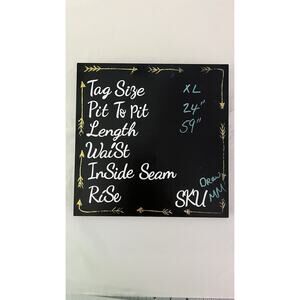 Tag Size XL
Pit To Pit 24"
Length 59"
WaiSt
InSide Seam
RiSe SKU Drew MM